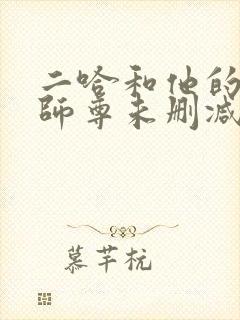 二哈和他的
師尊未删减
慕芊杭